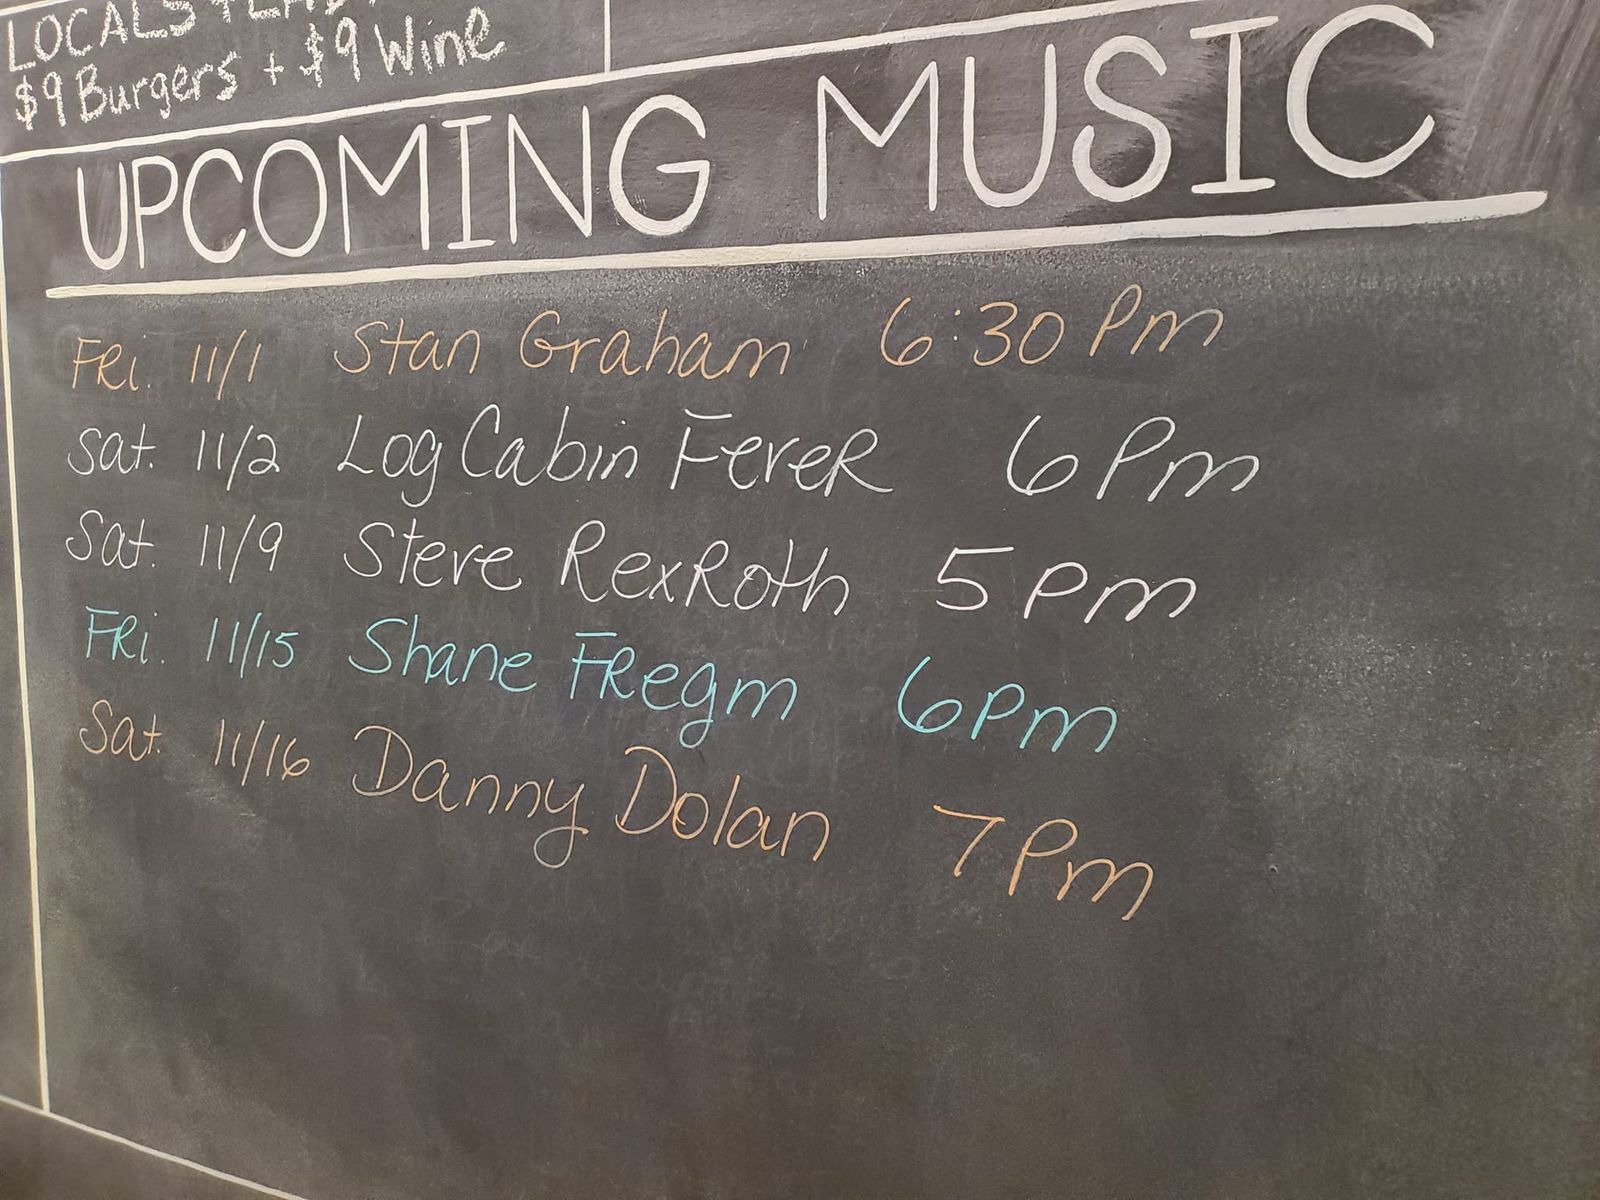 LOCALS
$9 Burgers + $9 Wine
UPCOMING MUSIC
FRi. 11/1 Stan Graham 6:30 Pm
Sat. 11/2 Log Cabin FeveR 6 Pm
Sat. 11/9 Steve RexRoth 5 pm
FRi. 11/15 Shane FRegm 6 pm
Sat. 11/16 Danny Dolan 7 Pm